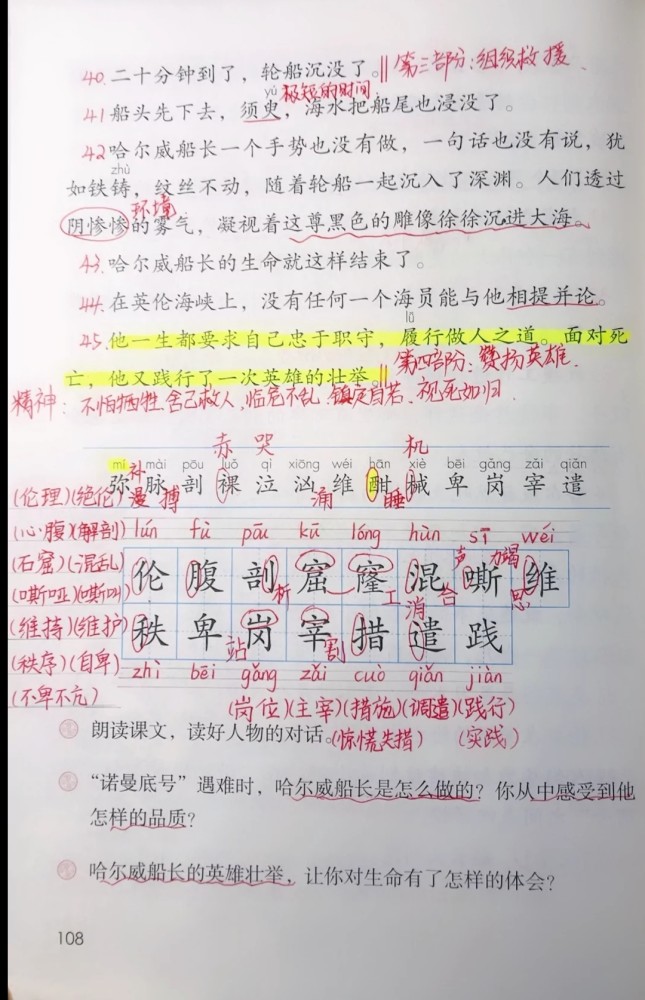 40.二十分钟到了，轮船沉没了。‖第三部分：组织救援
yú 极短的时间
41 船头先下去，须臾，海水把船尾也浸没了。
42 哈尔威船长一个手势也没有做，一句话也没有说，犹
zhù
如铁铸，纹丝不动，随着轮船一起沉入了深渊。人们透过
环境
阴惨惨的雾气，凝视着这尊黑色的雕像徐徐沉进大海。
43.哈尔威船长的生命就这样结束了。
44.在英伦海峡上，没有任何一个海员能与他相提并论。
lǚ
45.他一生都要求自己忠于职守，履行做人之道。面对死
亡，他又践行了一次英雄的壮举。‖第四部分：赞扬英雄.
精神：不怕牺牲、舍己救人、临危不乱、镇定自若、视死如归.
赤 哭 机
mí mài pōu luǒ qì xiōng wéi hān xiè bēi gǎng zǎi qiǎn
弥 脉 剖 裸 泣 汹 维 酣 械 卑 岗 宰 遣
补
(伦理)(绝伦) 漫 搏 涌 睡
(心腹)(解剖) lún fù pōu kū lóng hùn sī wéi
(石窟)(混乱) 伦 腹 剖 窟 窿 混 嘶 维
析 工 合 声 力竭 思
(嘶哑)(嘶叫)
消
(维持)(维护) 秩 卑 岗 宰 措 遣 践
站 割
(秩序)(自卑) zhì bēi gǎng zǎi cuò qiǎn jiàn
(不卑不亢) (岗位)(主宰)(措施)(调遣)(践行)
朗读课文，读好人物的对话。(惊慌失措) (实践)
“诺曼底号”遇难时，哈尔威船长是怎么做的？你从中感受到他
怎样的品质？
哈尔威船长的英雄壮举，让你对生命有了怎样的体会？
108